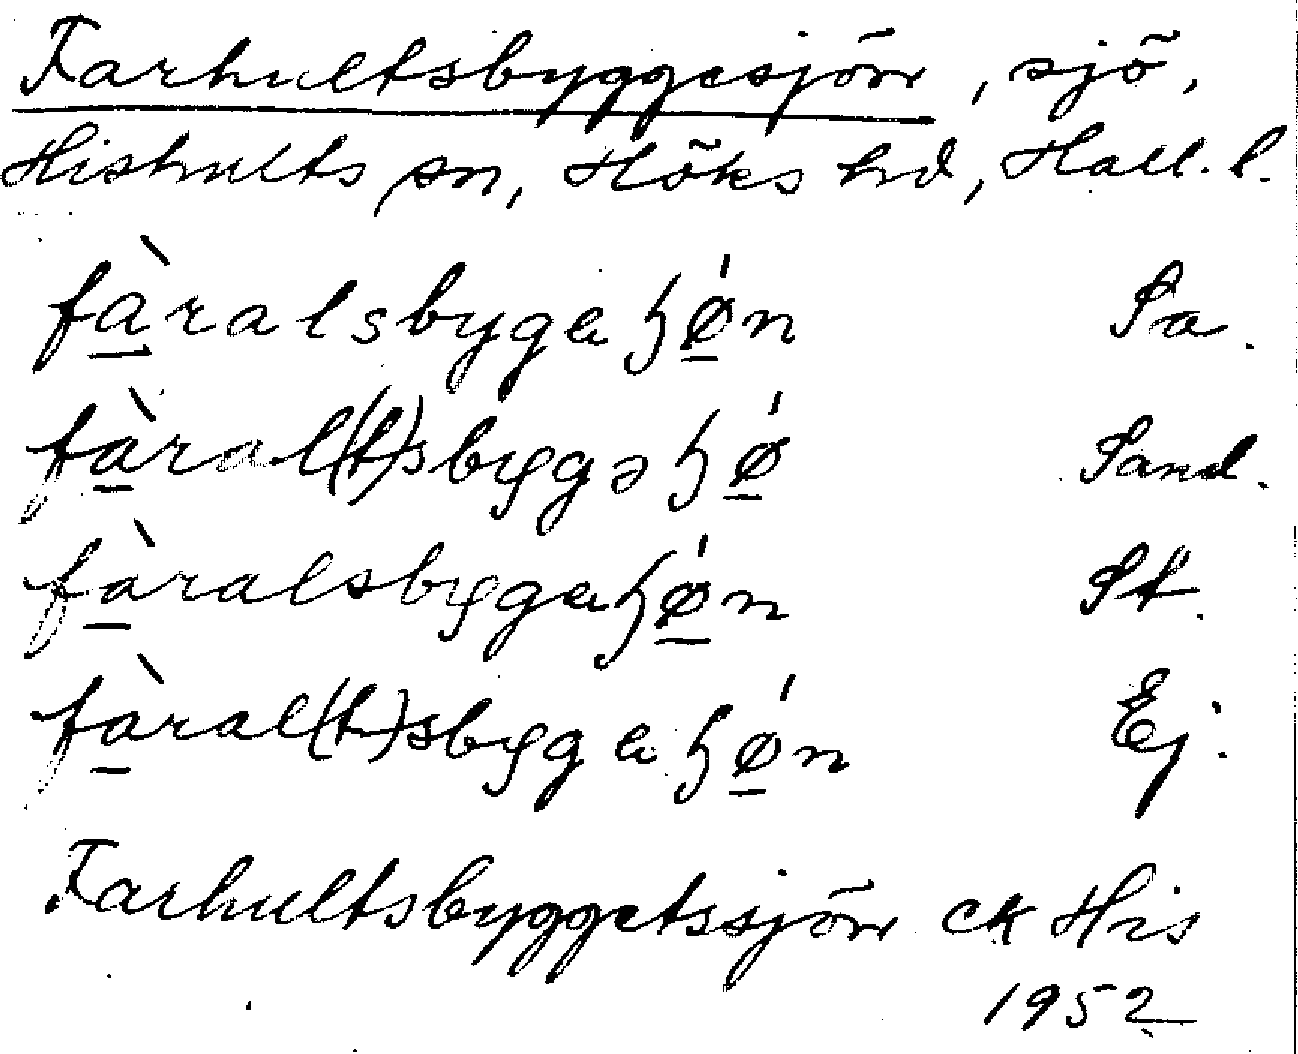 Farhultsbyggesjön, sjö,
Hishults sn, Höks hd, Hall. l.
fàralsbygeɧǿn Sa.
fàral(t)sbygəɧǿ Sand.
fàralsbygeɧǿn St.
fàral(t)sbygeɧǿn Ej.
Farhultsbyggetssjön ek His
1952